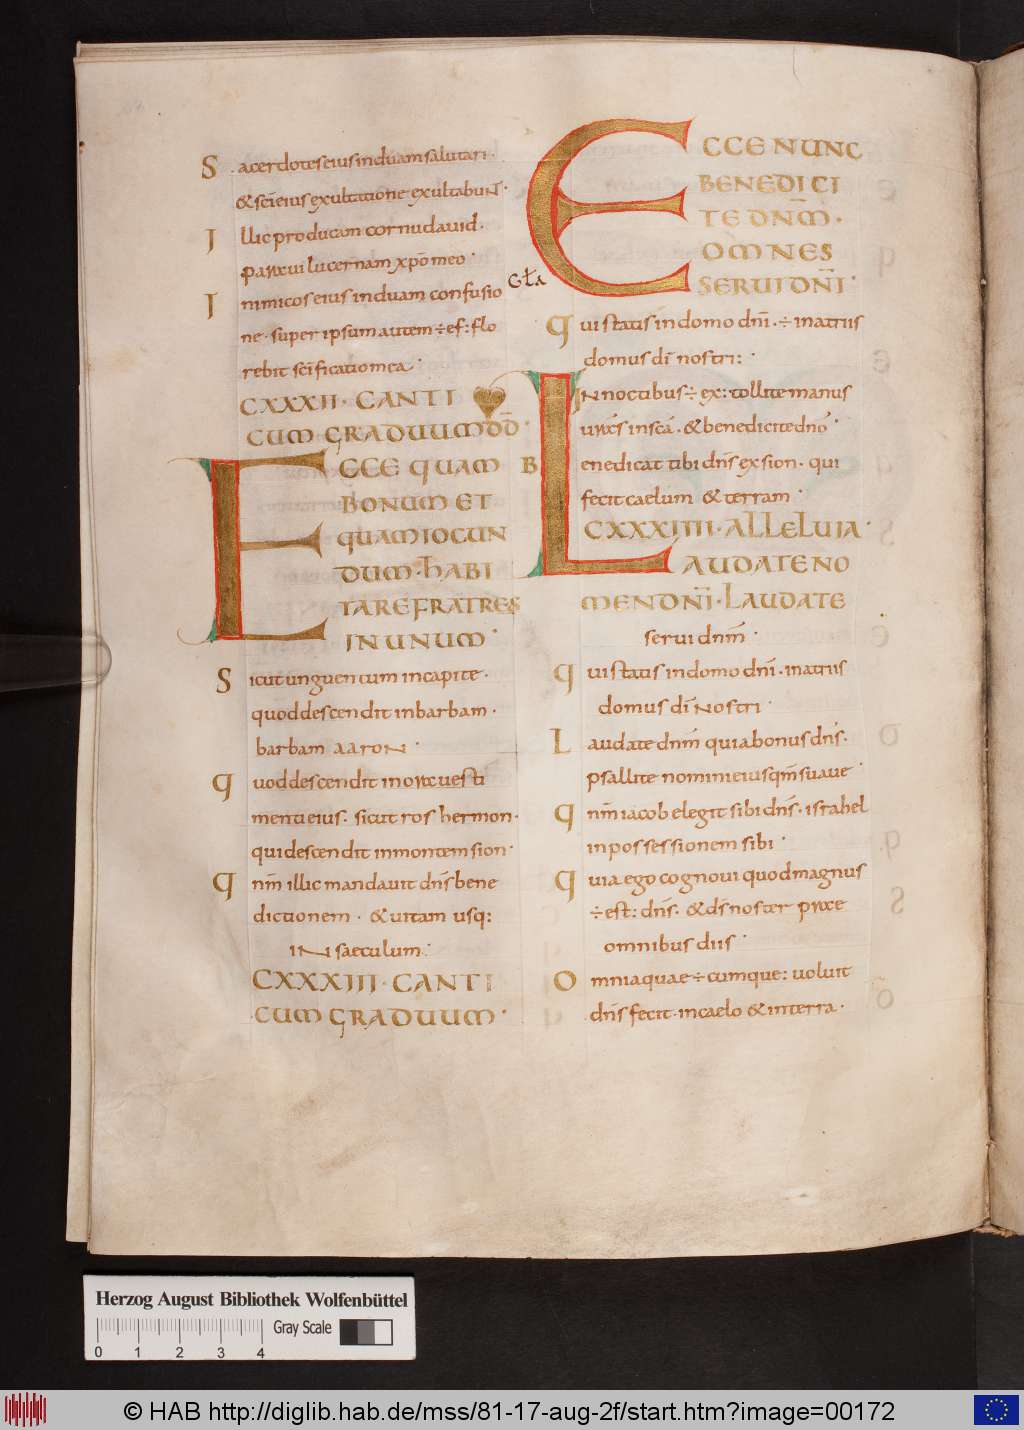 Sacerdotes eius induam salutari·
& sc̄i eius exultatione exultabuNT·
Illic producam cornu dauid·
paraui lucernam xp̄o meo·
Inimicos eius induam confusio
ne· super ipsum autem ÷ ef: flo
rebit sc̄ificatio mea·
CXXXII· CANTI
CUM GRADUUM D̄D·
ECCE QUAM
BONUM ET
QUAM IOCUN
DUM· HABI
TARE FRATRES
IN UNUM·
Sicut unguentum in capite·
quod descendit in barbam·
barbam aaroN·
Quod descendit in ora uesti
menti eius· sicut ros hermon·
qui descendit in montem sion·
Qnm̄ illic mandauit dn̄s bene
dictionem· & uitam usq:
iN saeculum:
CXXXIII· CANTI
CUM GRADUUM·
Gła
ECCE NUNC
BENEDICI
TE DN̄M·
OMNES
SERUI DN̄I·
Qui statis in domo dn̄i· ÷ in atriis
domus dī nostri:·
IN noctibus ÷ ex: tollite manus
uras̄ in sc̄a· & benedicite dnō·
Benedicat tibi dn̄s ex sion· qui
fecit caelum & terram·
CXXXIIII· ALLELUIA·
LAUDATE NO
MEN DN̄I· LAUDATE
serui dnm̄·
Qui statis in domo dn̄i· in atriis
domus dī Nostri·
Laudate dnm̄ quia bonus dn̄s·
psallite nomini eius qm̄ suaue·
Qnm̄ iacob elegit sibi dn̄s· israhel
in possessionem sibi·
Quia ego cognoui quod magnus
÷ est: dn̄s· & ds̄ noster prae
omnibus diis·
Omnia quae ÷ cumque: uoluit
dn̄s fecit· in caelo & in terra·
Herzog August Bibliothek Wolfenbüttel
Gray Scale
0 1 2 3 4
© HAB http://diglib.hab.de/mss/81-17-aug-2f/start.htm?image=00172